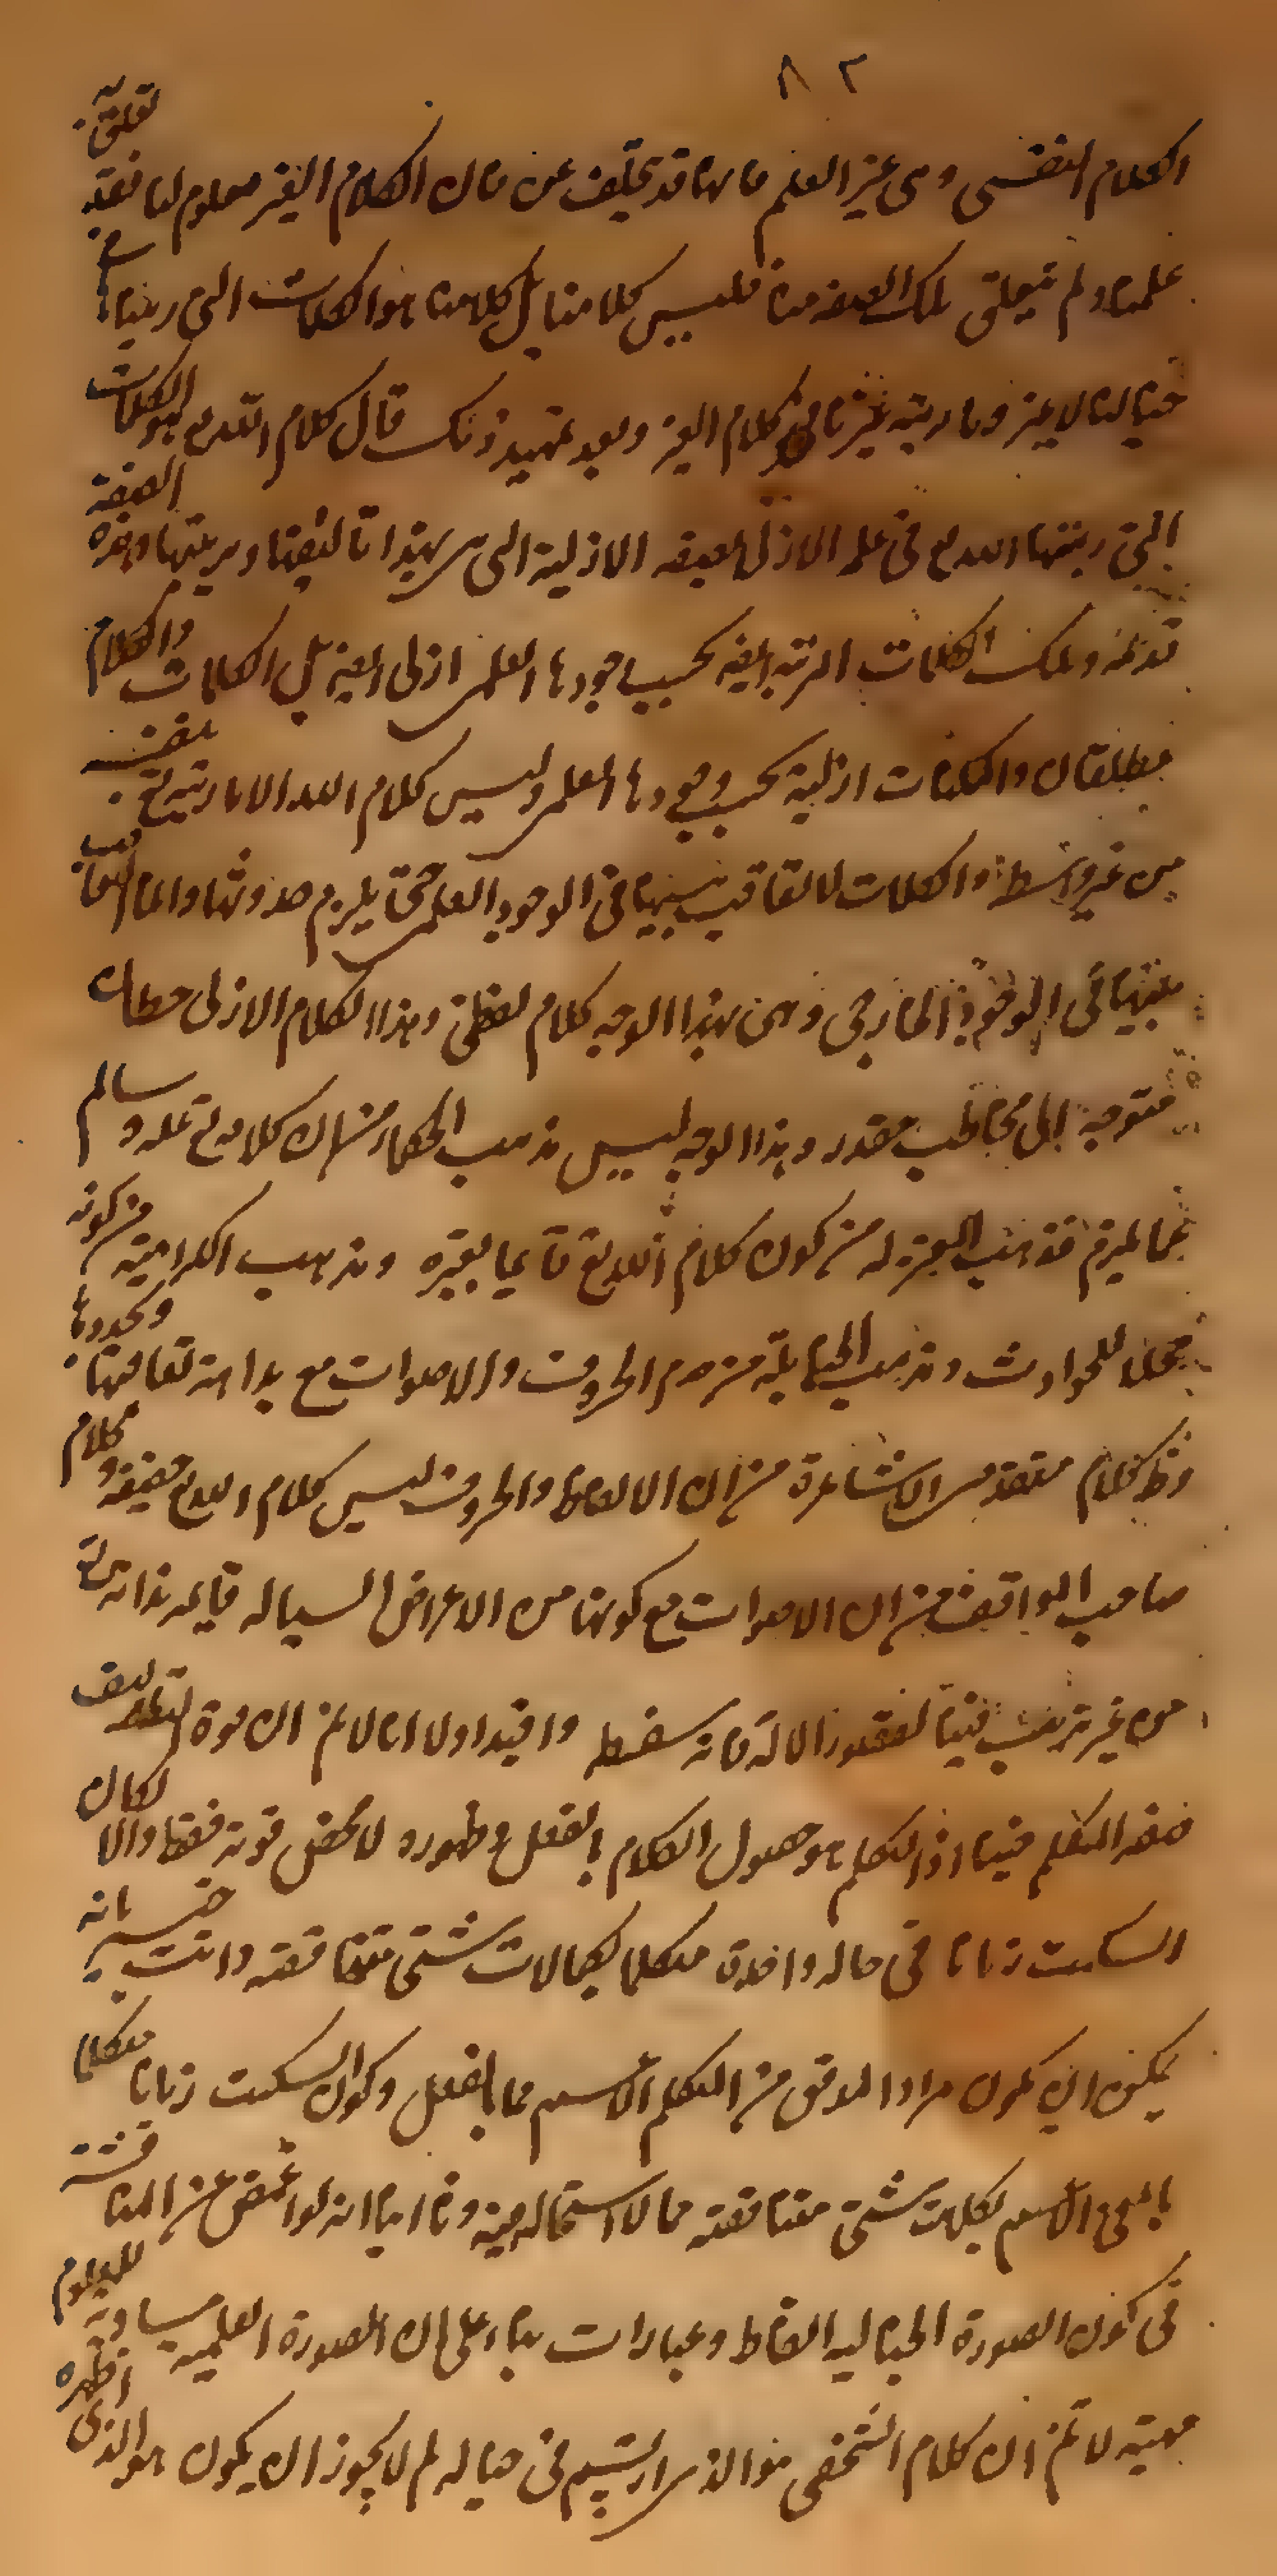 ٨٢
الكلام النفسى وهى غير العلم فانها قد تختلف عن فان الكلام الغير معلوم لنا فقد تعلق به
علمنا ولم تتعلق تلك الصفة منا فليس كلامنا بل كلامنا هو الكلمات التى رتبناها فى
خيالنا لا غير وما رتبه غيرنا فهو كلام الغير وبعد تمهيد ذلك قال كلام الله تع هو الكلمات
التى رتبها الله تع فى علمه الازلى بصفته الازلية التى هى مبدا تاليفها وترتيبها وهذه الصفة
قديمة وتلك الكلمات المرتبة ايضا بحسب وجودها العلمى ازلى ايضا بل الكلمات والكلام
مطلقا كسائر الممكنات ازلية بحسب وجودها العلمى وليس كلام الله الا ما رتبه تع بنفسه
من غير واسطة والكلمات لا تعاقب بينها فى الوجود العلمى حتى يلزم حدوثها وانما التعاقب
بينها فى الوجود الخارجى وهى بهذا الوجه كلام لفظى وهذا الكلام الازلى خطاب
متوجه الى مخاطب مقدر وهذا الوجه ليس مذهب الحكماء من ان كلامه تع علمه وسالم
عما يلزم مذهب المعتزلة من كون كلام الله تع قايما بغيره ومذهب الكرامية من كونه
محلا للحوادث ومذهب الحنابلة من قدم الحروف والاصوات مع بداهة تعاقبها وتجددها
وظ كلام متقدمى الاشاعرة من ان الالفاظ والحروف ليس كلام الله تع حقيقة وكلام
صاحب المواقف من ان الاصوات مع كونها من الاعراض السيالة قايمة بذاته تع
من غير ترتيب فيها لفقد الالة فانه سفسطة وافيد اولا انا لا نم ان قوة التاليف
صفة التكلم فينا اذ التكلم هو حصول الكلام بالفعل وظهوره لا محض قوته فقط والا لكان
الساكت زمانا فى حالة واحدة متكلما بكلمات شتى متناقضة وانت خبير بانه
يمكن ان يكون مراد المدقق من التكلم الاسم مما بالفعل وكون الساكت زمانا متكلما
بالمعنى الاسم بكلمات شتى متناقضة مما لا استحالة فيه وثانيا انه لو اغمض عن المناقشة
فى كون الصورة الخيالية الفاظ وعبارات بناء على ان الصورة العلمية مساوية للمعلوم
مهية لا نم ان كلام الشخص هو الذى ارتسم فى خياله لم لا يجوز ان يكون هو الذى اظهره